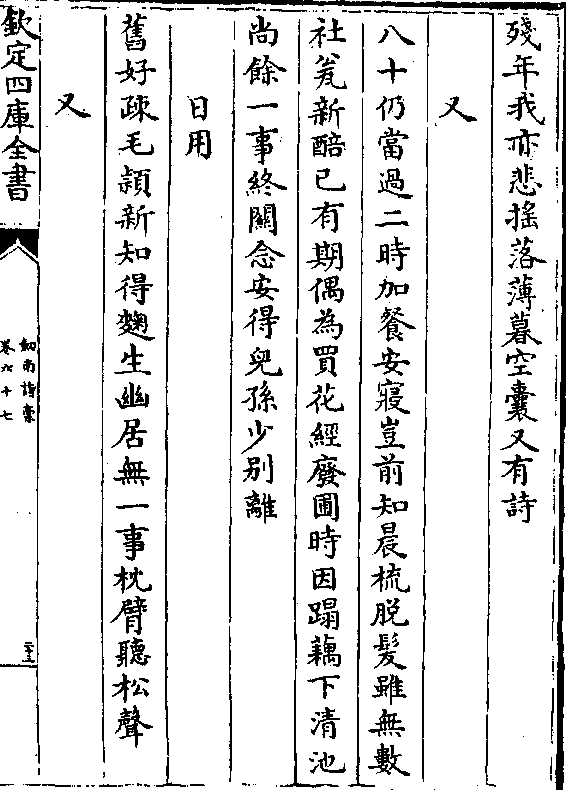 殘年我亦悲搖落薄暮空囊又有詩
又
八十仍當過二時加餐安寢豈前知晨梳脱髮雖無數
社瓮新醅已有期偶為買花經廢圃時因蹋藕下清池
尚餘一事終關念安得兒孫少别離
日用
舊好疎毛頴新知得麴生幽居無一事枕臂聽松聲
又
欽定四庫全書
劍南詩稾
卷六十七
二十三